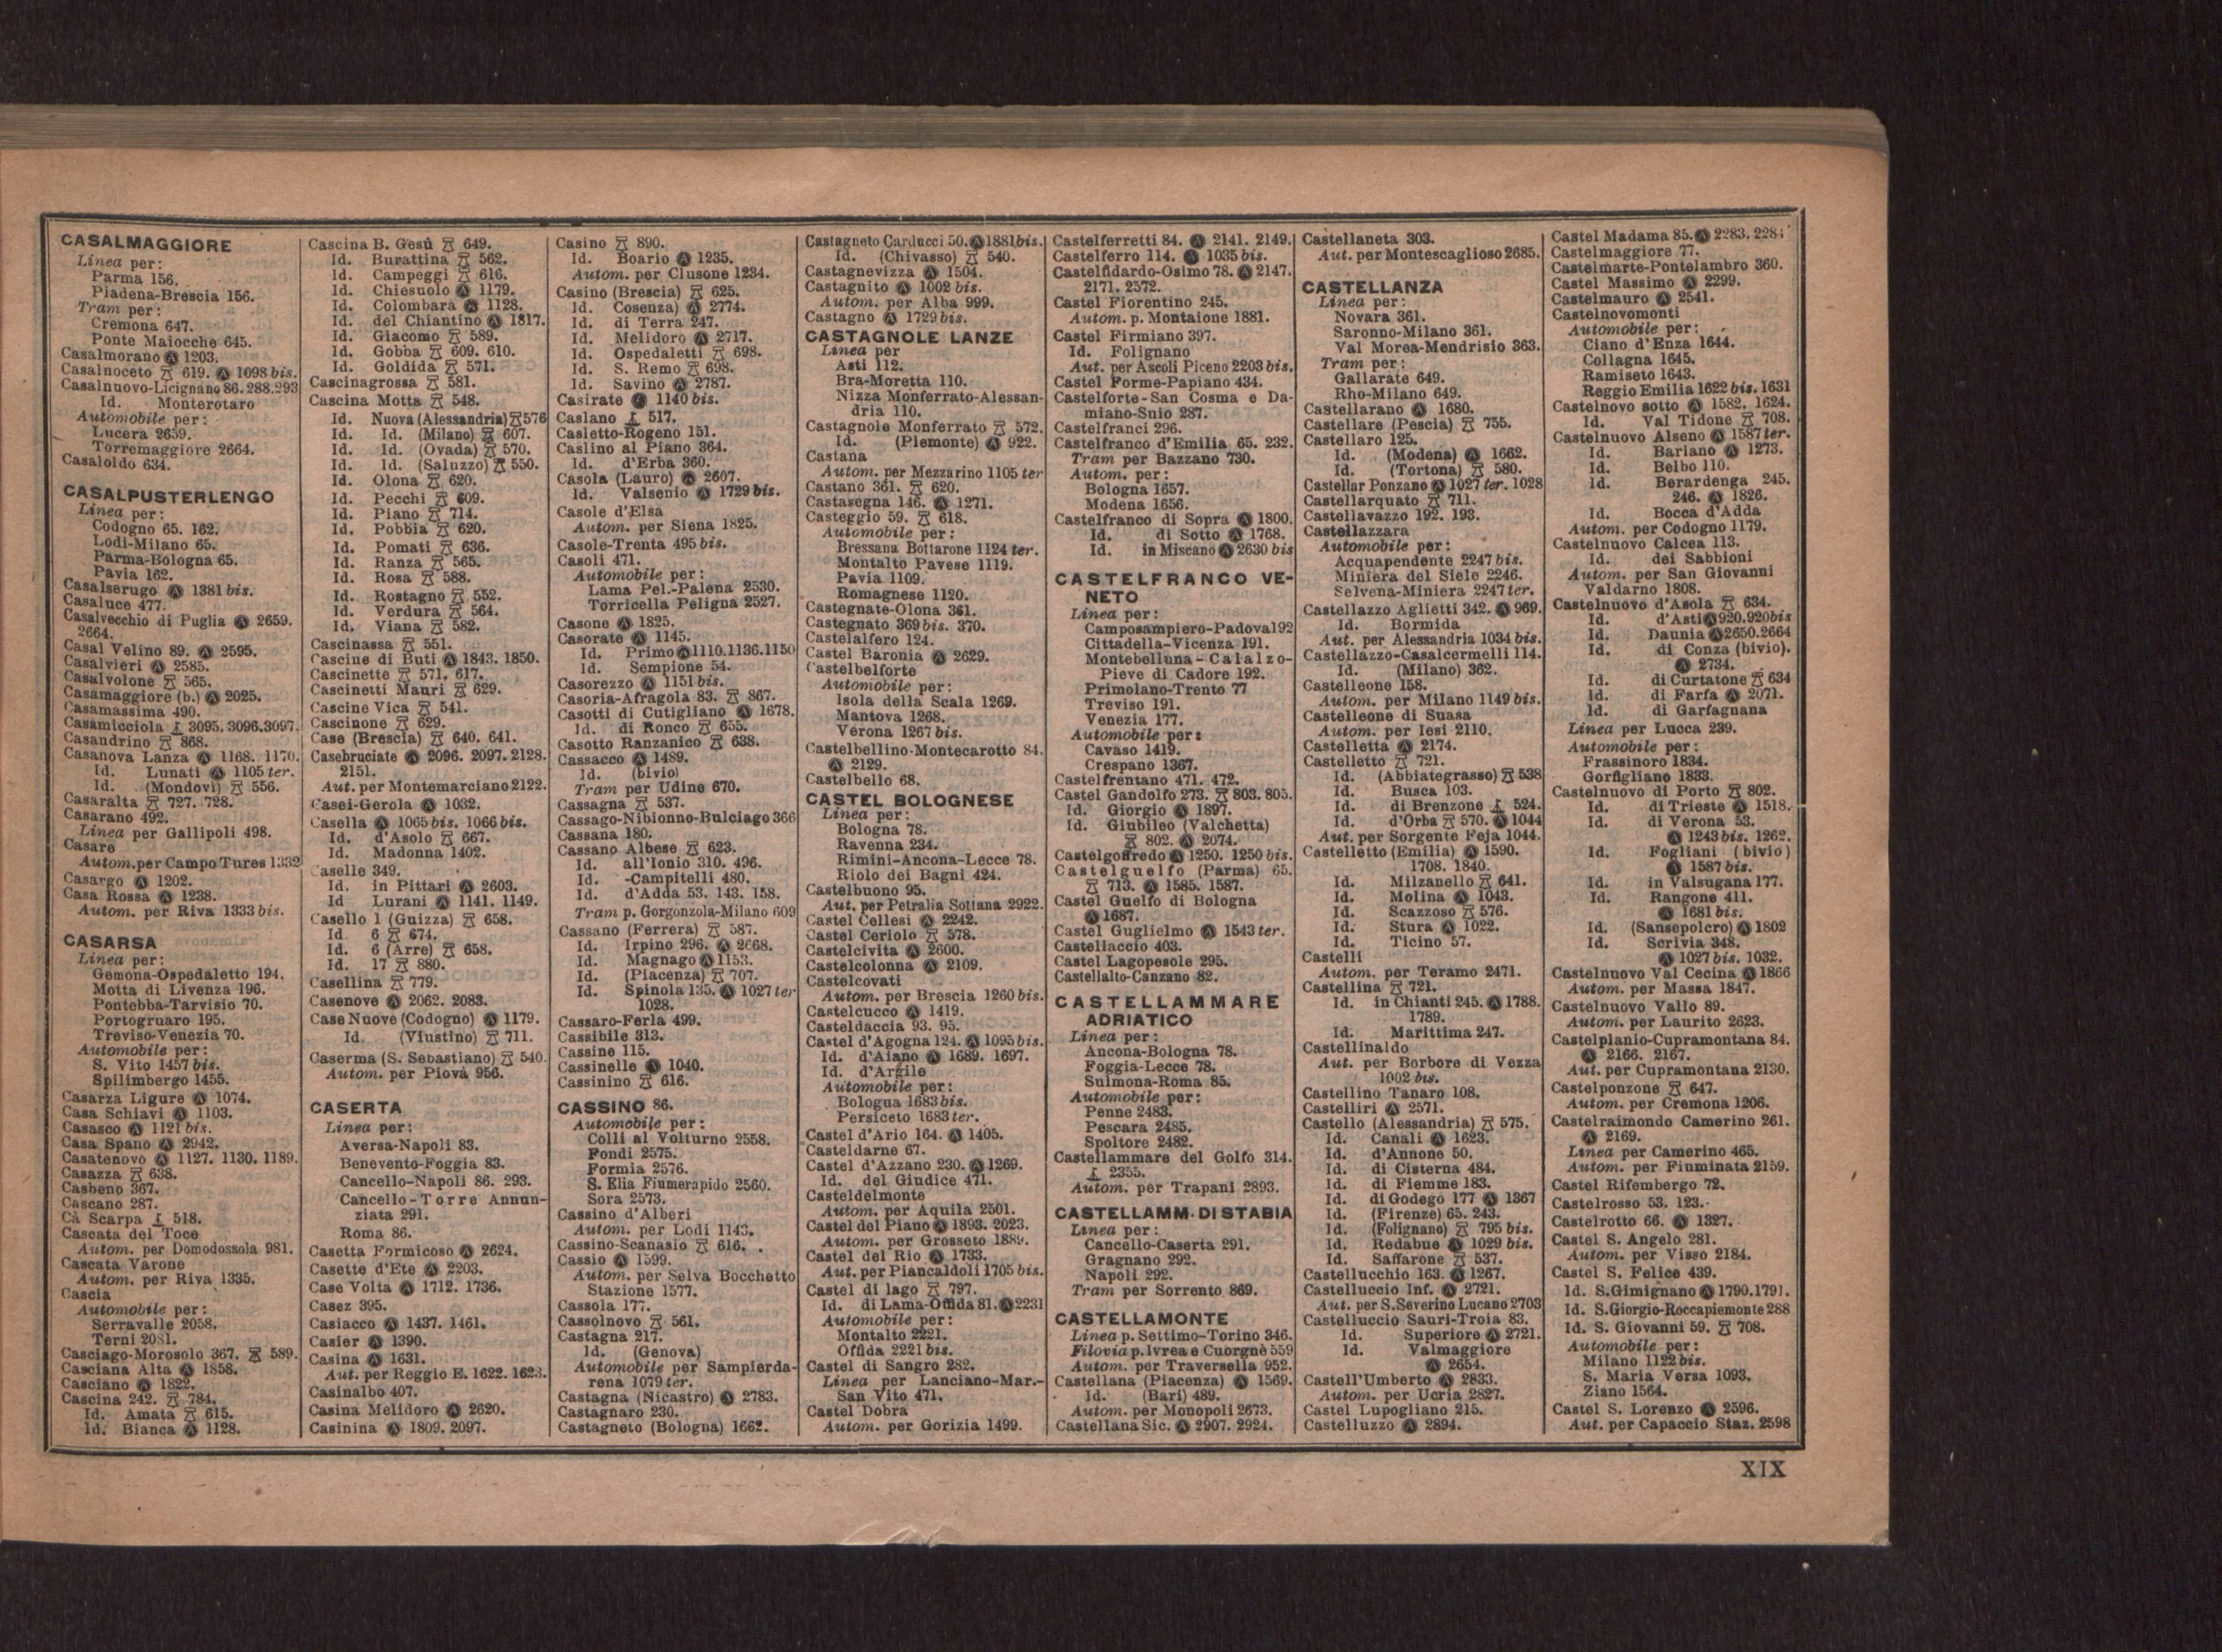 CASALMAGGIORE
Linea per:
Parma 156.
Piadena-Brescia 156.
Tram per:
Cremona 647.
Ponte Maiocche 645.
Casalmorano Ⓐ 1203.
Casalnoceto 619. Ⓐ 1098 bis.
Casalnuovo-Licignano 86. 288. 293
Id. Monterotaro
Automobile per:
Lucera 2659.
Torremaggiore 2664.
Casaloldo 634.
CASALPUSTERLENGO
Linea per:
Codogno 65. 162.
Lodi-Milano 65.
Parma-Bologna 65.
Pavia 162.
Casalserugo Ⓐ 1381 bis.
Casaluce 477.
Casalvecchio di Puglia Ⓐ 2659.
2664.
Casal Velino 89. Ⓐ 2595.
Casalvieri Ⓐ 2585.
Casalvolone 565.
Casamaggiore (b.) Ⓐ 2025.
Casamassima 490.
Casamicciola 3095. 3096. 3097.
Casandrino 868.
Casanova Lanza Ⓐ 1168. 1170.
Id. Lunati Ⓐ 1105 ter.
Id. (Mondovì) 556.
Casaralta 727. 728.
Casarano 492.
Linea per Gallipoli 498.
Casare
Autom. per Campo Tures 1332
Casargo Ⓐ 1202.
Casa Rossa Ⓐ 1238.
Autom. per Riva 1333 bis.
CASARSA
Linea per:
Gemona-Ospedaletto 194.
Motta di Livenza 196.
Pontebba-Tarvisio 70.
Portogruaro 195.
Treviso-Venezia 70.
Automobile per:
S. Vito 1457 bis.
Spilimbergo 1455.
Casarza Ligure Ⓐ 1074.
Casa Schiavi Ⓐ 1103.
Casasco Ⓐ 1121 bis.
Casa Spano Ⓐ 2942.
Casatenovo Ⓐ 1127. 1130. 1189.
Casazza 638.
Casbeno 367.
Cascano 287.
Cà Scarpa 518.
Cascata del Toce
Autom. per Domodossola 981.
Cascata Varone
Autom. per Riva 1335.
Cascia
Automobile per:
Serravalle 2058.
Terni 2081.
Casciago-Morosolo 367. 589.
Casciana Alta Ⓐ 1858.
Casciano Ⓐ 1822.
Cascina 242. 784.
Id. Amata 615.
Id. Bianca Ⓐ 1128.
Cascina B. Gesù 649.
Id. Burattina 562.
Id. Campeggi 616.
Id. Chiesuolo Ⓐ 1179.
Id. Colombara Ⓐ 1128.
Id. del Chiantino Ⓐ 1817.
Id. Giacomo 589.
Id. Gobba 609. 610.
Id. Goldida 571.
Cascinagrossa 581.
Cascina Motta 548.
Id. Nuova (Alessandria) 576
Id. Id. (Milano) 607.
Id. Id. (Ovada) 570.
Id. Id. (Saluzzo) 550.
Id. Olona 620.
Id. Pecchi 609.
Id. Piano 714.
Id. Pobbia 620.
Id. Pomati 636.
Id. Ranza 565.
Id. Rosa 588.
Id. Rostagno 552.
Id. Verdura 564.
Id. Viana 582.
Cascinassa 551.
Cascine di Buti Ⓐ 1843. 1850.
Cascinette 571. 617.
Cascinetti Mauri 629.
Cascine Vica 541.
Cascinone 629.
Case (Brescia) 640. 641.
Casebruciate Ⓐ 2096. 2097. 2128.
2151.
Aut. per Montemarciano 2122.
Casei-Gerola Ⓐ 1032.
Casella Ⓐ 1065 bis. 1066 bis.
Id. d'Asolo 667.
Id. Madonna 1402.
Caselle 349.
Id. in Pittari Ⓐ 2603.
Id Lurani Ⓐ 1141. 1149.
Casello 1 (Guizza) 658.
Id. 6 674.
Id. 6 (Arre) 658.
Id. 17 880.
Casellina 779.
Casenove Ⓐ 2062. 2083.
Case Nuove (Codogno) Ⓐ 1179.
Id. (Viustino) 711.
Caserma (S. Sebastiano) 540.
Autom. per Piovà 956.
CASERTA
Linea per:
Aversa-Napoli 83.
Benevento-Foggia 83.
Cancello-Napoli 86. 293.
Cancello-Torre Annun-
ziata 291.
Roma 86.
Casetta Formicoso Ⓐ 2624.
Casette d'Ete Ⓐ 2203.
Case Volta Ⓐ 1712. 1736.
Casez 395.
Casiacco Ⓐ 1437. 1461.
Casier Ⓐ 1390.
Casina Ⓐ 1631.
Aut. per Reggio E. 1622. 1623.
Casinalbo 407.
Casina Melidoro Ⓐ 2620.
Casinina Ⓐ 1809. 2097.
Casino 890.
Id. Boario Ⓐ 1235.
Autom. per Clusone 1234.
Casino (Brescia) 625.
Id. Cosenza) Ⓐ 2774.
Id. di Terra 247.
Id. Melidoro Ⓐ 2717.
Id. Ospedaletti 698.
Id. S. Remo 698.
Id. Savino Ⓐ 2787.
Casirate Ⓐ 1140 bis.
Caslano 517.
Casletto-Rogeno 151.
Caslino al Piano 364.
Id. d'Erba 360.
Casola (Lauro) Ⓐ 2607.
Id. Valsenio Ⓐ 1729 bis.
Casole d'Elsa
Autom. per Siena 1825.
Casole-Trenta 495 bis.
Casoli 471.
Automobile per:
Lama Pel.-Palena 2530.
Torricella Peligna 2527.
Casone Ⓐ 1825.
Casorate Ⓐ 1145.
Id. Primo Ⓐ 1110. 1136. 1150
Id. Sempione 54.
Casorezzo Ⓐ 1151 bis.
Casoria-Afragola 83. 867.
Casotti di Cutigliano Ⓐ 1678.
Id. di Ronco 655.
Casotto Ranzanico 638.
Cassacco Ⓐ 1489.
Id. (bivio)
Tram per Udine 670.
Cassagna 537.
Cassago-Nibionno-Bulciago 366
Cassana 180.
Cassano Albese 623.
Id. all'Ionio 310. 496.
Id. -Campitelli 480.
Id. d'Adda 53. 143. 158.
Tram p. Gorgonzola-Milano 609
Cassano (Ferrera) 587.
Id. Irpino 296. Ⓐ 2668.
Id. Magnago Ⓐ 1153.
Id. (Piacenza) 707.
Id. Spinola 135. Ⓐ 1027 ter
1028.
Cassaro-Ferla 499.
Cassibile 313.
Cassine 115.
Cassinelle Ⓐ 1040.
Cassinino 616.
CASSINO 86.
Automobile per:
Colli al Volturno 2558.
Fondi 2575.
Formia 2576.
S. Elia Fiumerapido 2560.
Sora 2573.
Cassino d'Alberi
Autom. per Lodi 1143.
Cassino-Scanasio 616.
Cassio Ⓐ 1599.
Autom. per Selva Bocchetto
Stazione 1577.
Cassola 177.
Cassolnovo 561.
Castagna 217.
Id. (Genova)
Automobile per Sampierda-
rena 1079 ter.
Castagna (Nicastro) Ⓐ 2783.
Castagnaro 230.
Castagneto (Bologna) 1662.
Castagneto Carducci 50. Ⓐ 1881 bis.
Id. (Chivasso) 540.
Castagnevizza Ⓐ 1504.
Castagnito Ⓐ 1002 bis.
Autom. per Alba 999.
Castagno Ⓐ 1729 bis.
CASTAGNOLE LANZE
Linea per
Asti 112.
Bra-Moretta 110.
Nizza Monferrato-Alessan-
dria 110.
Castagnole Monferrato 572.
Id. (Piemonte) Ⓐ 922.
Castana
Autom. per Mezzarino 1105 ter
Castano 361. 620.
Castasegna 146. Ⓐ 1271.
Casteggio 59. 618.
Automobile per:
Bressana Bottarone 1124 ter.
Montalto Pavese 1119.
Pavia 1109.
Romagnese 1120.
Castegnate-Olona 361.
Castegnato 369 bis. 370.
Castelalfero 124.
Castel Baronia Ⓐ 2629.
Castelbelforte
Automobile per:
Isola della Scala 1269.
Mantova 1268.
Verona 1267 bis.
Castelbellino-Montecarotto 84.
Ⓐ 2129.
Castelbello 68.
CASTEL BOLOGNESE
Linea per:
Bologna 78.
Ravenna 234.
Rimini-Ancona-Lecce 78.
Riolo dei Bagni 424.
Castelbuono 95.
Aut. per Petralia Sottana 2922.
Castel Cellesi Ⓐ 2242.
Castel Ceriolo 578.
Castelcivita Ⓐ 2600.
Castelcolonna Ⓐ 2109.
Castelcovati
Autom. per Brescia 1260 bis.
Castelcucco Ⓐ 1419.
Casteldaccia 93. 95.
Castel d'Agogna 124. Ⓐ 1095 bis.
Id. d'Aiano Ⓐ 1689. 1697.
Id. d'Argile
Automobile per:
Bologna 1683 bis.
Persiceto 1683 ter.
Castel d'Ario 164. Ⓐ 1405.
Casteldarne 67.
Castel d'Azzano 230. Ⓐ 1269.
Id. del Giudice 471.
Casteldelmonte
Autom. per Aquila 2501.
Castel del Piano Ⓐ 1893. 2023.
Autom. per Grosseto 1889.
Castel del Rio Ⓐ 1733.
Aut. per Piancaldoli 1705 bis.
Castel di lago 797.
Id. di Lama-Offida 81. Ⓐ 2231
Automobile per:
Montalto 2221.
Offida 2221 bis.
Castel di Sangro 282.
Linea per Lanciano-Mar.-
San Vito 471.
Castel Dobra
Autom. per Gorizia 1499.
Castelferretti 84. Ⓐ 2141. 2149.
Castelferro 114. Ⓐ 1035 bis.
Castelfidardo-Osimo 78. Ⓐ 2147.
2171. 2572.
Castel Fiorentino 245.
Autom. p. Montaione 1881.
Castel Firmiano 397.
Id. Folignano
Aut. per Ascoli Piceno 2203 bis.
Castel Forme-Papiano 434.
Castelforte-San Cosma e Da-
miano-Suio 287.
Castelfranci 296.
Castelfranco d'Emilia 65. 232.
Tram per Bazzano 730.
Autom. per:
Bologna 1657.
Modena 1656.
Castelfranco di Sopra Ⓐ 1800.
Id. di Sotto Ⓐ 1768.
Id. in Miscano Ⓐ 2630 bis
CASTELFRANCO VE-
NETO
Linea per:
Camposampiero-Padova 192
Cittadella-Vicenza 191.
Montebelluna-Calalzo-
Pieve di Cadore 192.
Primolano-Trento 77
Treviso 191.
Venezia 177.
Automobile per:
Cavaso 1419.
Crespano 1367.
Castelfrentano 471. 472.
Castel Gandolfo 273. 803. 805.
Id. Giorgio Ⓐ 1897.
Id. Giubileo (Valchetta)
802. Ⓐ 2074.
Castelgoffredo Ⓐ 1250. 1250 bis.
Castelguelfo (Parma) 65.
713. Ⓐ 1585. 1587.
Castel Guelfo di Bologna
Ⓐ 1687.
Castel Guglielmo Ⓐ 1543 ter.
Castellaccio 403.
Castel Lagopesole 295.
Castellalto-Canzano 82.
CASTELLAMMARE
ADRIATICO
Linea per:
Ancona-Bologna 78.
Foggia-Lecce 78.
Sulmona-Roma 85.
Automobile per:
Penne 2483.
Pescara 2485.
Spoltore 2482.
Castellammare del Golfo 314.
2355.
Autom. per Trapani 2893.
CASTELLAMM. DI STABIA
Linea per:
Cancello-Caserta 291.
Gragnano 292.
Napoli 292.
Tram per Sorrento 869.
CASTELLAMONTE
Linea p. Settimo-Torino 346.
Filovia p. Ivrea e Cuorgnè 559
Autom. per Traversella 952.
Castellana (Piacenza) Ⓐ 1569.
Id. (Bari) 489.
Autom. per Monopoli 2673.
Castellana Sic. Ⓐ 2907. 2924.
Castellaneta 303.
Aut. per Montescaglioso 2685.
CASTELLANZA
Linea per:
Novara 361.
Saronno-Milano 361.
Val Morea-Mendrisio 363.
Tram per:
Gallarate 649.
Rho-Milano 649.
Castellarano Ⓐ 1680.
Castellare (Pescia) 755.
Castellaro 125.
Id. (Modena) Ⓐ 1662.
Id. (Tortona) 580.
Castellar Ponzano Ⓐ 1027 ter. 1028
Castellarquato 711.
Castellavazzo 192. 193.
Castellazzara
Automobile per:
Acquapendente 2247 bis.
Miniera del Siele 2246.
Selvena-Miniera 2247 ter.
Castellazzo Aglietti 342. Ⓐ 969.
Id. Bormida
Aut. per Alessandria 1034 bis.
Castellazzo-Casalcermelli 114.
Id. (Milano) 362.
Castelleone 158.
Autom. per Milano 1149 bis.
Castelleone di Suasa
Autom. per Iesi 2110.
Castelletta Ⓐ 2174.
Castelletto 721.
Id. (Abbiategrasso) 538
Id. Busca 103.
Id. di Brenzone 524.
Id. d'Orba 570. Ⓐ 1044
Aut. per Sorgente Feja 1044.
Castelletto (Emilia) Ⓐ 1590.
1708. 1840.
Id. Milzanello 641.
Id. Molina Ⓐ 1043.
Id. Scazzoso 576.
Id. Stura Ⓐ 1022.
Id. Ticino 57.
Castelli
Autom. per Teramo 2471.
Castellina 721.
Id. in Chianti 245. Ⓐ 1788.
1789.
Id. Marittima 247.
Castellinaldo
Aut. per Borbore di Vezza
1002 bis.
Castellino Tanaro 108.
Castelliri Ⓐ 2571.
Castello (Alessandria) 575.
Id. Canali Ⓐ 1623.
Id. d'Annone 50.
Id. di Cisterna 484.
Id. di Fiemme 183.
Id. di Godego 177 Ⓐ 1367
Id. (Firenze) 65. 243.
Id. (Folignano) 795 bis.
Id. Redabue Ⓐ 1029 bis.
Id. Saffarone 537.
Castellucchio 163. Ⓐ 1267.
Castelluccio Inf. Ⓐ 2721.
Aut. per S. Severino Lucano 2703
Castelluccio Sauri-Troia 83.
Id. Superiore Ⓐ 2721.
Id. Valmaggiore
Ⓐ 2654.
Castell'Umberto Ⓐ 2833.
Autom. per Ucria 2827.
Castel Lupogliano 215.
Castelluzzo Ⓐ 2894.
Castel Madama 85. Ⓐ 2283. 2284
Castelmaggiore 77.
Castelmarte-Pontelambro 360.
Castel Massimo Ⓐ 2299.
Castelmauro Ⓐ 2541.
Castelnovomonti
Automobile per:
Ciano d'Enza 1644.
Collagna 1645.
Ramiseto 1643.
Reggio Emilia 1622 bis. 1631
Castelnovo sotto Ⓐ 1582. 1624.
Id. Val Tidone 708.
Castelnuovo Alseno Ⓐ 1587 ter.
Id. Bariano Ⓐ 1273.
Id. Belbo 110.
Id. Berardenga 245.
246. Ⓐ 1826.
Id. Bocca d'Adda
Autom. per Codogno 1179.
Castelnuovo Calcea 113.
Id. dei Sabbioni
Autom. per San Giovanni
Valdarno 1808.
Castelnuovo d'Asola 634.
Id. d'Asti Ⓐ 920. 920 bis
Id. Daunia Ⓐ 2650. 2664
Id. di Conza (bivio).
Ⓐ 2734.
Id. di Curtatone 634
Id. di Farfa Ⓐ 2071.
Id. di Garfagnana
Linea per Lucca 239.
Automobile per:
Frassinoro 1834.
Gorfigliano 1833.
Castelnuovo di Porto 802.
Id. di Trieste Ⓐ 1518.
Id. di Verona 53.
Ⓐ 1243 bis. 1262.
Id. Fogliani (bivio)
Ⓐ 1587 bis.
Id. in Valsugana 177.
Id. Rangone 411.
Ⓐ 1681 bis.
Id. (Sansepolcro) Ⓐ 1802
Id. Scrivia 348.
Ⓐ 1027 bis. 1032.
Castelnuovo Val Cecina Ⓐ 1866
Autom. per Massa 1847.
Castelnuovo Vallo 89.
Autom. per Laurito 2623.
Castelplanio-Cupramontana 84.
Ⓐ 2166. 2167.
Aut. per Cupramontana 2130.
Castelponzone 647.
Autom. per Cremona 1206.
Castelraimondo Camerino 261.
Ⓐ 2169.
Linea per Camerino 465.
Autom. per Fiuminata 2159.
Castel Rifembergo 72.
Castelrosso 53. 123.
Castelrotto 66. Ⓐ 1327.
Castel S. Angelo 281.
Autom. per Visso 2184.
Castel S. Felice 439.
Id. S. Gimignano Ⓐ 1790. 1791.
Id. S. Giorgio-Roccapiemonte 288
Id. S. Giovanni 59. 708.
Automobile per:
Milano 1122 bis.
S. Maria Versa 1093.
Ziano 1564.
Castel S. Lorenzo Ⓐ 2596.
Aut. per Capaccio Staz. 2598
XIX